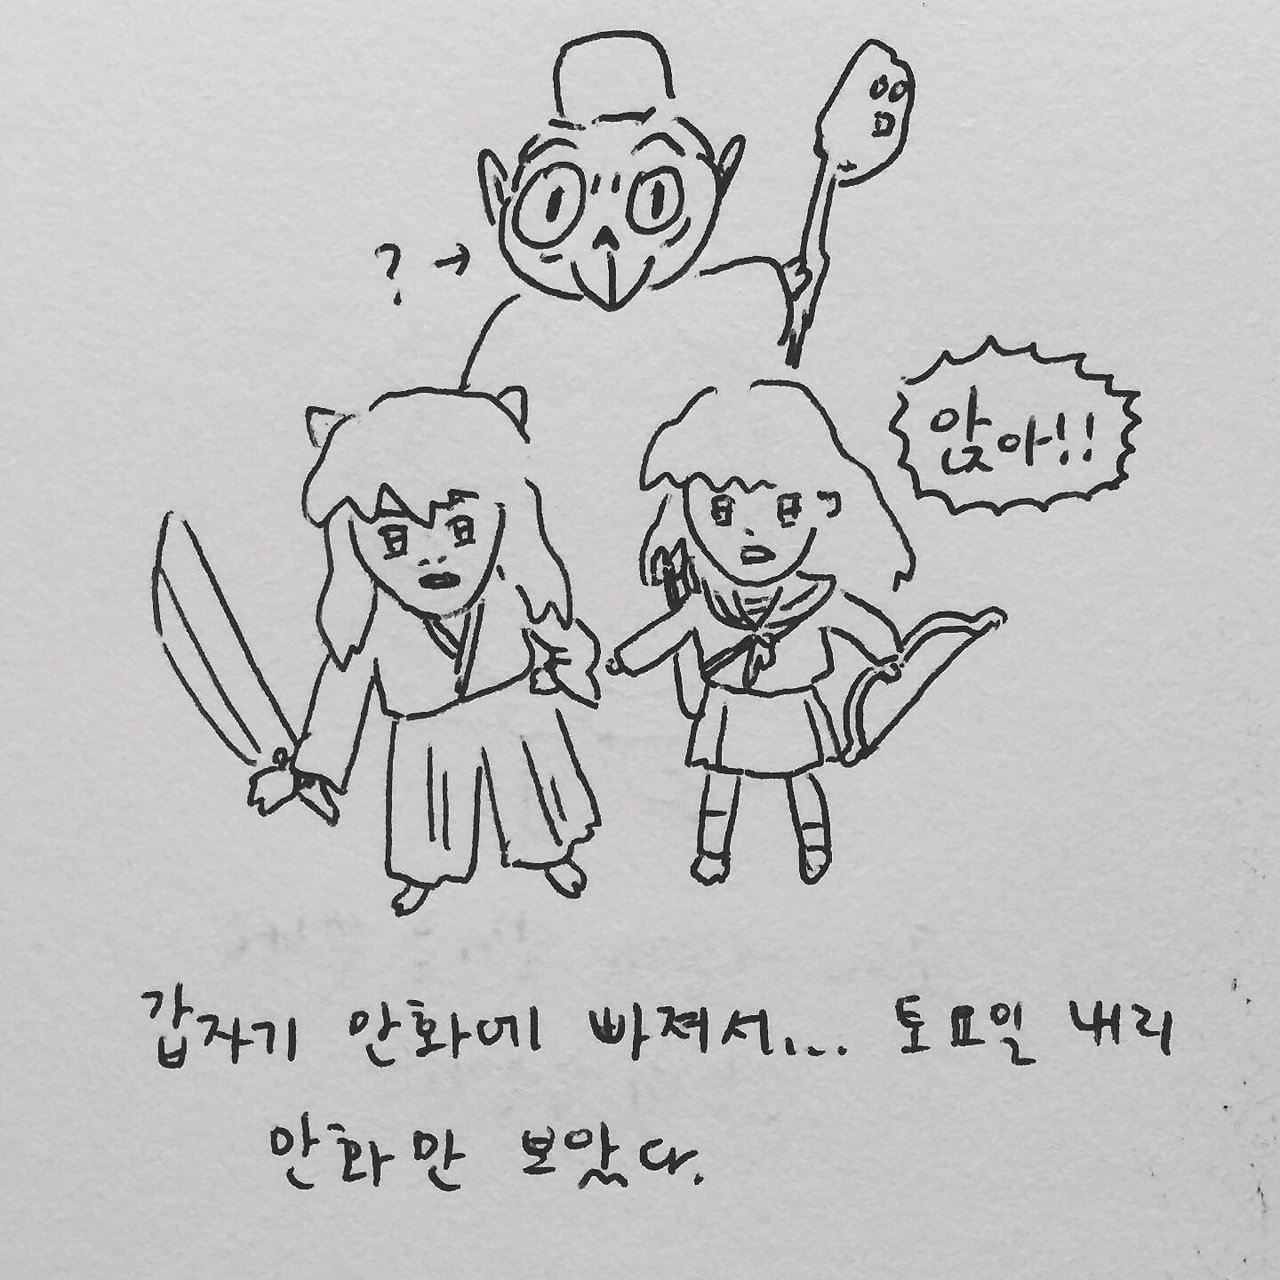 ?→
앉아!!
갑자기 만화에 빠져서... 토요일 내리
만화만 보았다.